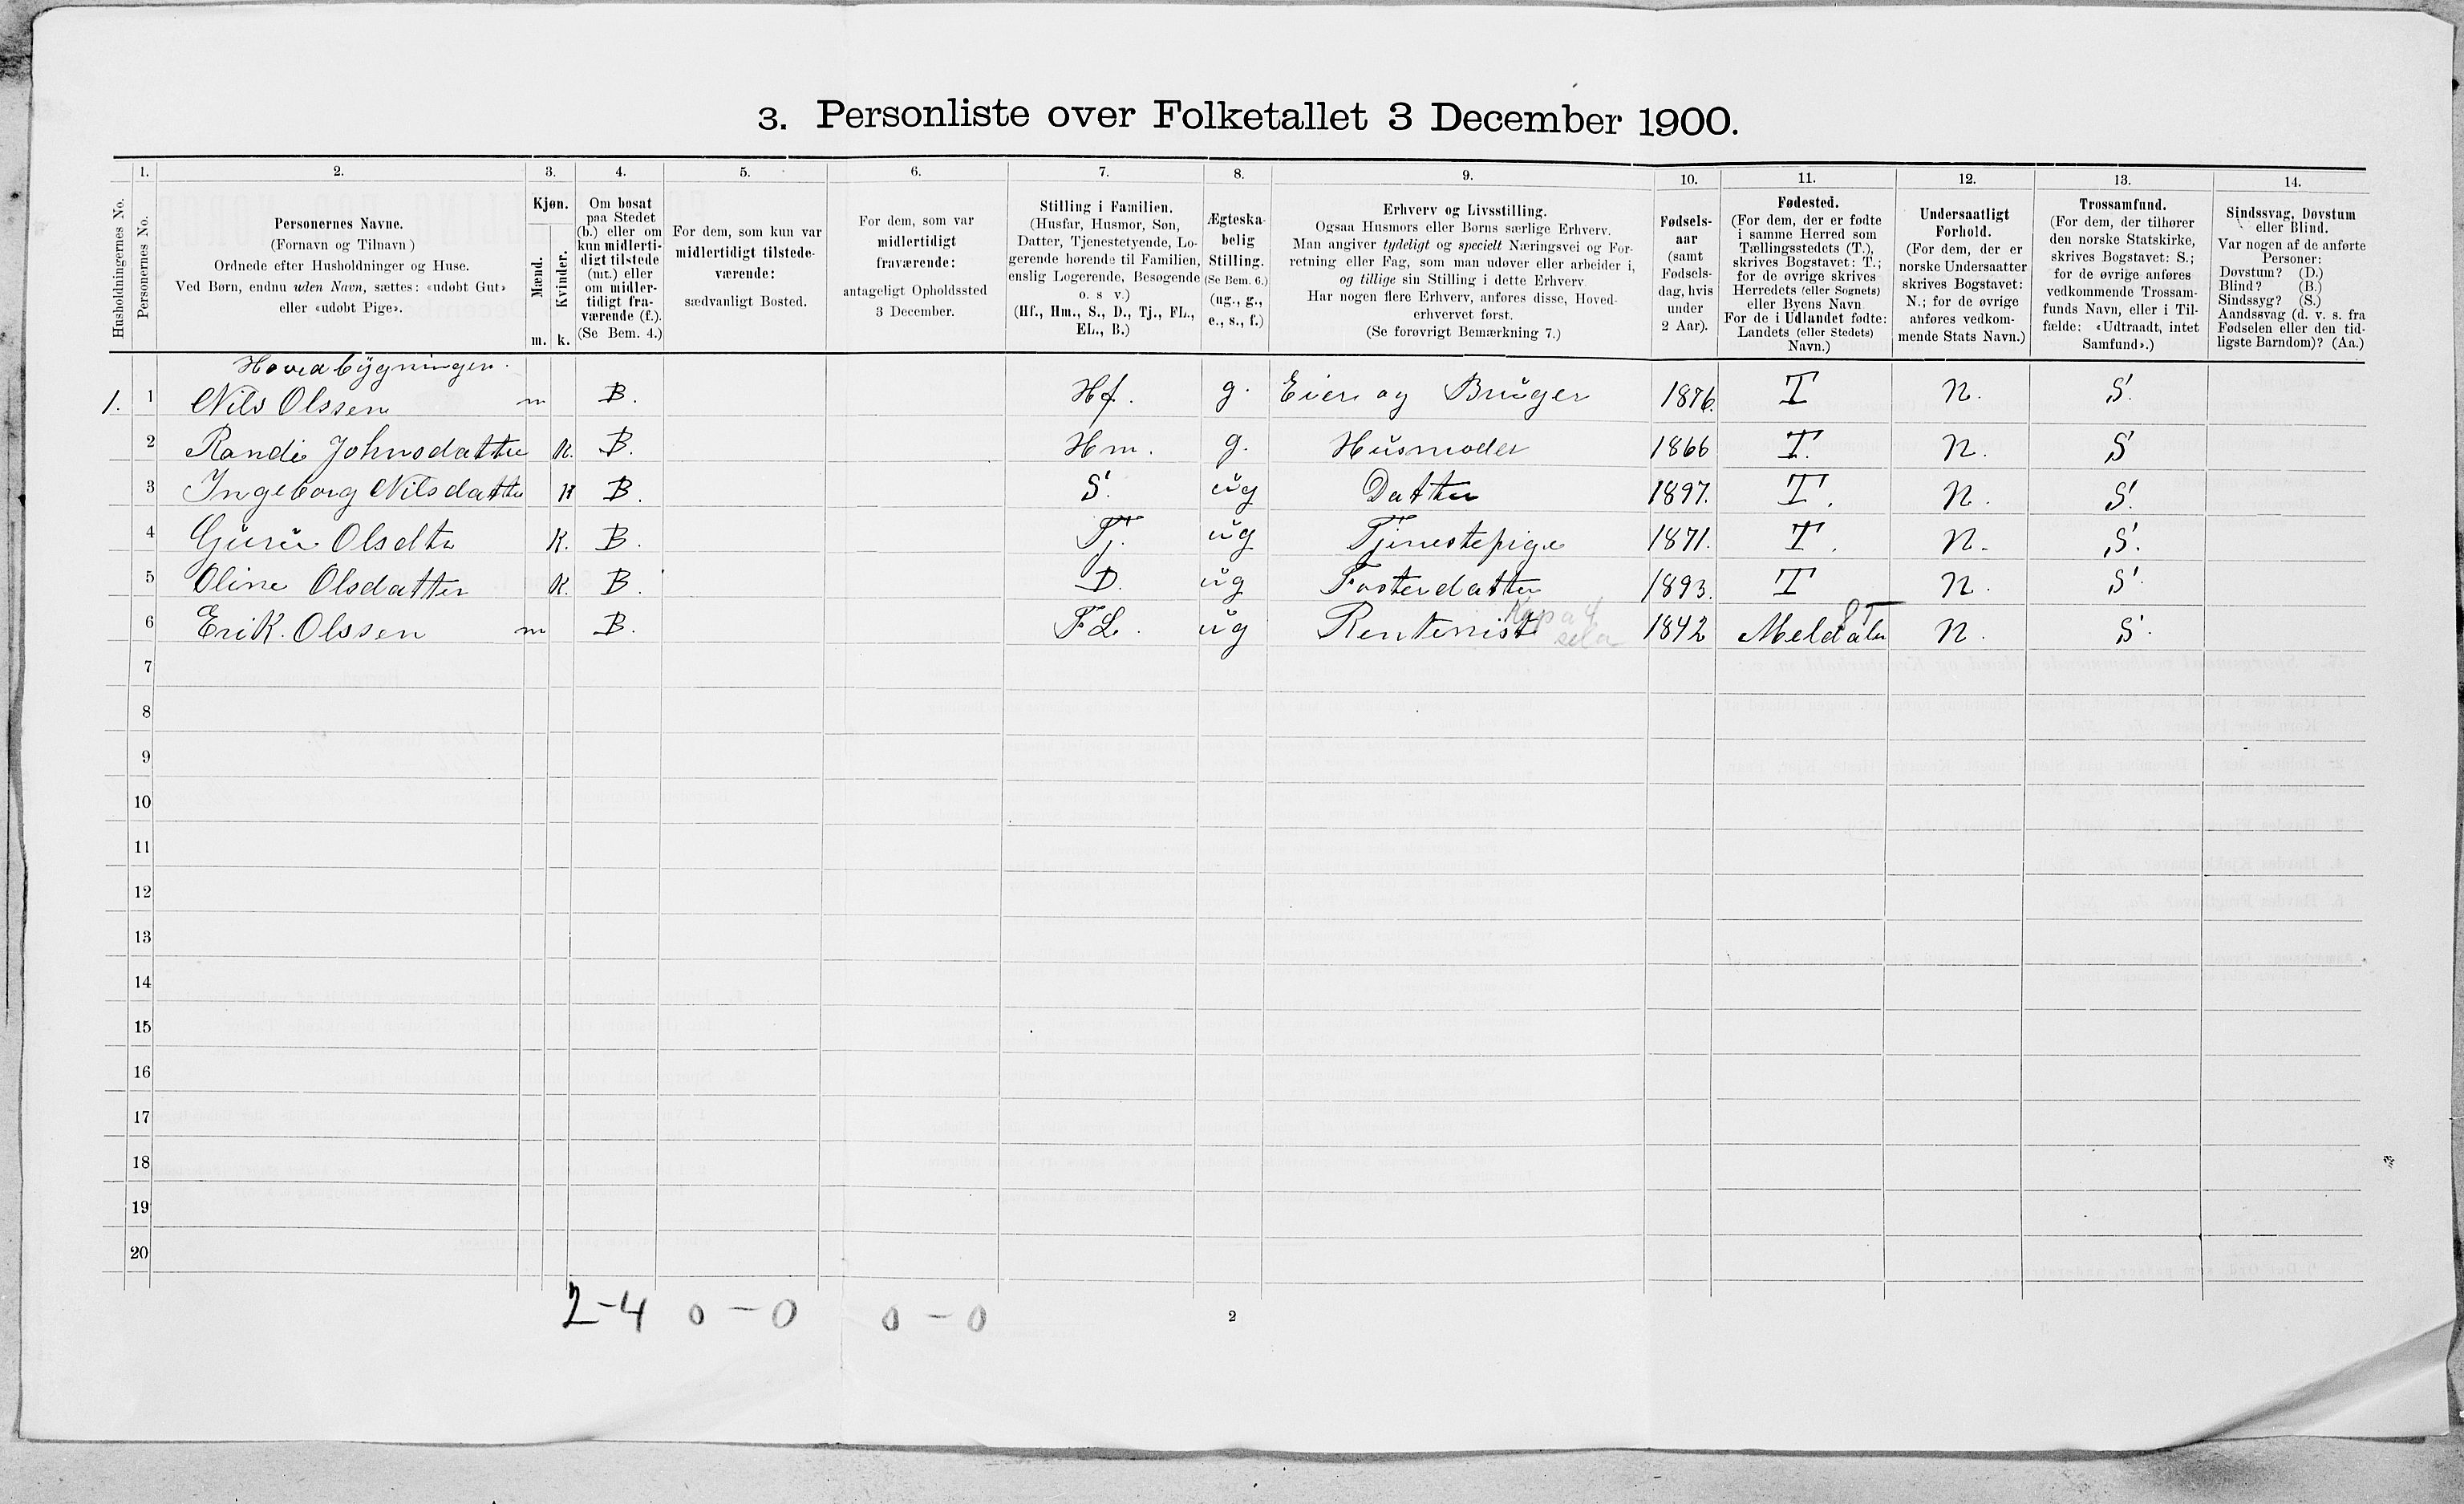 3. Personliste over Folketallet 3 December 1900.
Husholdningernes No.
1.
Personernes No.
2.
Personernes Navne.
(Fornavn og Tilnavn)
Ordnede efter Husholdninger og Huse.
Ved Børn, endnu uden Navn, sættes: «udøbt Gut»
eller «udøbt Pige».
3.
Kjøn.
Mænd.
Kvinder.
m. k.
4.
Om bosat
paa Stedet
(b.) eller om
kun midlerti-
digt tilstede
(mt.) eller
om midler-
tidigt fra-
værende (f.).
(Se Bem. 4.)
5.
For dem, som kun var
midlertidigt tilstede-
værende:
sædvanligt Bosted.
6.
For dem, som var
midlertidigt
fraværende:
antageligt Opholdssted
3 December.
7.
Stilling i Familien.
(Husfar, Husmor, Søn,
Datter, Tjenestetyende, Lo-
gerende hørende til Familien,
enslig Logerende, Besøgende
o. s v.)
(Hf., Hm., S., D., Tj., FL.,
EL., B.)
8.
Ægteska-
belig
Stilling.
(Se Bem. 6.)
(ug., g.,
e., s., f.)
9.
Erhverv og Livsstilling.
Ogsaa Husmors eller Børns særlige Erhverv.
Man angiver tydeligt og specielt Næringsvei og For-
retning eller Fag, som man udøver eller arbeider i,
og tillige sin Stilling i dette Erhverv.
Har nogen flere Erhverv, anføres disse, Hoved-
erhvervet først.
(Se forøvrigt Bemærkning 7.)
10.
Fødsels-
aar
(samt
Fødsels-
dag, hvis
under
2 Aar).
11.
Fødested.
(For dem, der er fødte
i samme Herred som
Tællingsstedets (T.),
skrives Bogstavet: T.;
for de øvrige skrives
Herredets (eller Sognets)
eller Byens Navn.
For de i Udlandet fødte:
Landets (eller Stedets)
Navn.)
12.
Undersaatligt
Forhold.
(For dem, der er
norske Undersaatter
skrives Bogstavet:
N.; for de øvrige
anføres vedkom-
mende Stats Navn.)
13.
Trossamfund.
(For dem, der tilhører
den norske Statskirke,
skrives Bogstavet: S.;
for de øvrige anføres
vedkommende Trossam-
funds Navn, eller i Til-
fælde: «Udtraadt, intet
Samfund».)
14.
Sindssvag, Døvstum
eller Blind.
Var nogen af de anførte
Personer:
Døvstum? (D.)
Blind? (B.)
Sindssyg? (S.)
Aandssvag (d. v. s. fra
Fødselen eller den tid-
ligste Barndom)? (Aa.)
Hovedbygningen.
1. 1 Nils Olssen m B. Hf. g. Eier og Bruger 1876. T N. S.
2 Randi Johnsdatter K. B. Hm. g. Husmoder 1866 T. N. S
3 Ingeborg Nilsdatter K B. S. ug Datter 1897. T. N. S.
4 Guru Olsdtr K. B. Tj. ug Tjenestepige 1871. T. N. S.
5 Oline Olsdatter K. B. D. ug Fosterdatter 1893. T N. S.
6 Erik. Olssen m B. FL. ug Rentenist 1842 Meldaln N. S.
7
8
9
10
11
12
13
14
15
16
17
18
19
20
2-4 0-0 0-0
2